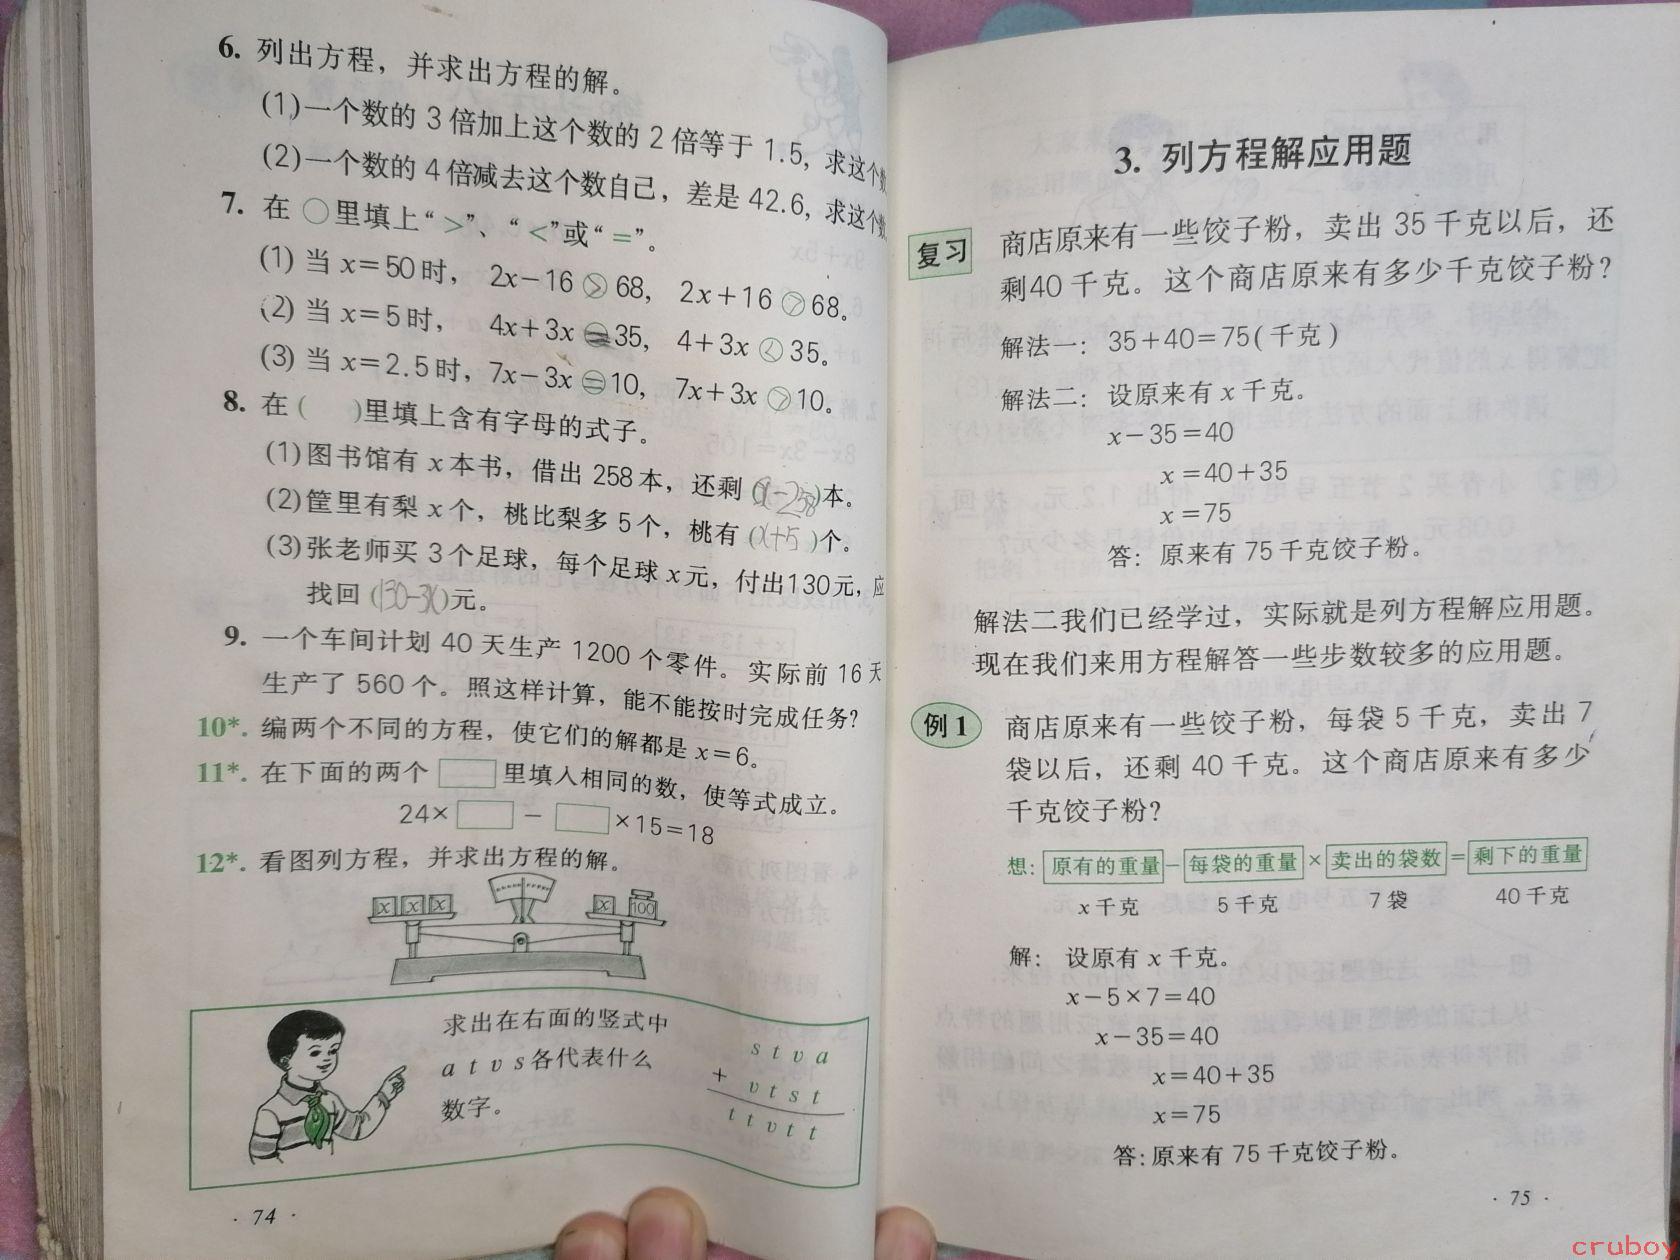 6. 列出方程，并求出方程的解。
(1)一个数的 3 倍加上这个数的 2 倍等于 1.5, 求这个数
(2)一个数的 4 倍减去这个数自己，差是 42.6, 求这个数
7. 在 ○里填上“>”、“<”或“=”。
(1) 当 x=50 时， 2x-16 > 68, 2x+16 > 68。
(2) 当 x=5 时， 4x+3x = 35, 4+3x < 35。
(3) 当 x=2.5 时, 7x-3x = 10, 7x+3x > 10。
8. 在( )里填上含有字母的式子。
(1)图书馆有 x 本书，借出 258 本，还剩(x-258)本。
(2)筐里有梨 x 个，桃比梨多 5 个，桃有(x+5)个。
(3)张老师买 3 个足球，每个足球 x 元，付出130元，应
找回(130-3x)元。
9. 一个车间计划 40 天生产 1200 个零件。实际前 16 天
生产了 560 个。照这样计算，能不能按时完成任务?
10*. 编两个不同的方程，使它们的解都是 x=6。
11*. 在下面的两个 □ 里填入相同的数，使等式成立。
24×□-□×15=18
12*. 看图列方程，并求出方程的解。
x x x x 100
求出在右面的竖式中
a t v s 各代表什么
数字。
s t v a
+ v t s t
t t v t t
· 74 ·
3. 列方程解应用题
复习 商店原来有一些饺子粉，卖出 35 千克以后，还
剩40 千克。这个商店原来有多少千克饺子粉?
解法一: 35+40=75(千克)
解法二: 设原来有 x 千克。
x-35=40
x=40+35
x=75
答: 原来有 75 千克饺子粉。
解法二我们已经学过，实际就是列方程解应用题。
现在我们来用方程解答一些步数较多的应用题。
例 1 商店原来有一些饺子粉，每袋 5 千克，卖出 7
袋以后，还剩 40 千克。这个商店原来有多少
千克饺子粉?
想: 原有的重量-每袋的重量×卖出的袋数=剩下的重量
x 千克 5 千克 7 袋 40 千克
解: 设原有 x 千克。
x-5×7=40
x-35=40
x=40+35
x=75
答:原来有 75 千克饺子粉。
· 75 ·
cruboy